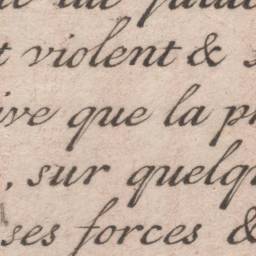 t violent &
ive que la p
, sur quelq
ses forces &